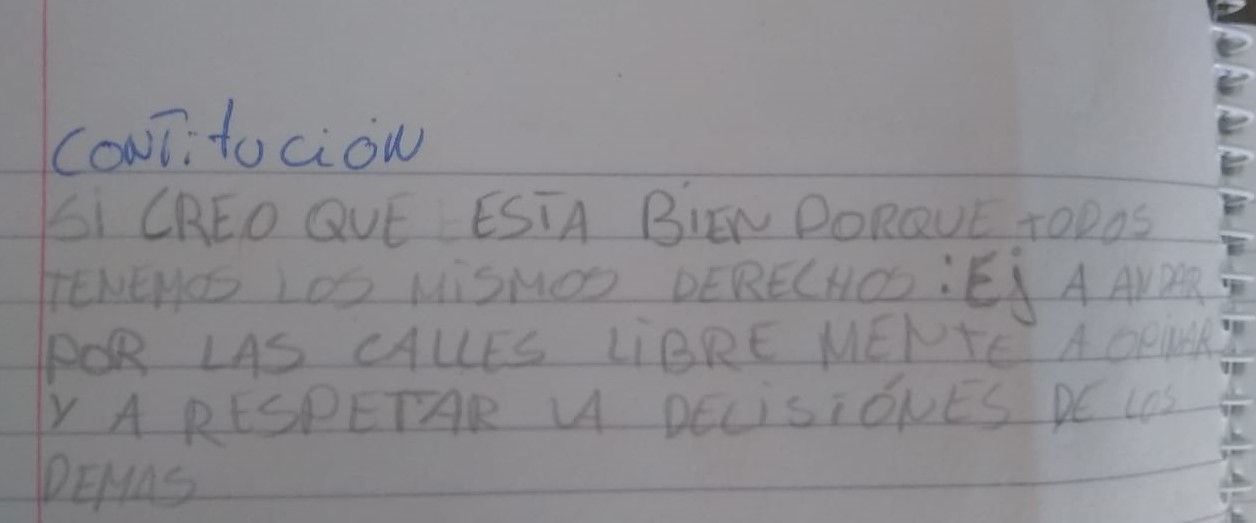 CONTitución
SI CREO QUE ESTA BIEN PORQUE tODOS
TENEMOS LOS MISMOS DERECHOS: Ej A ANDAR
POR LAS CALLES LIBRE MENtE A OPINAR
Y A RESPETAR LA DECISIÓNES DE LOS
DEMAS